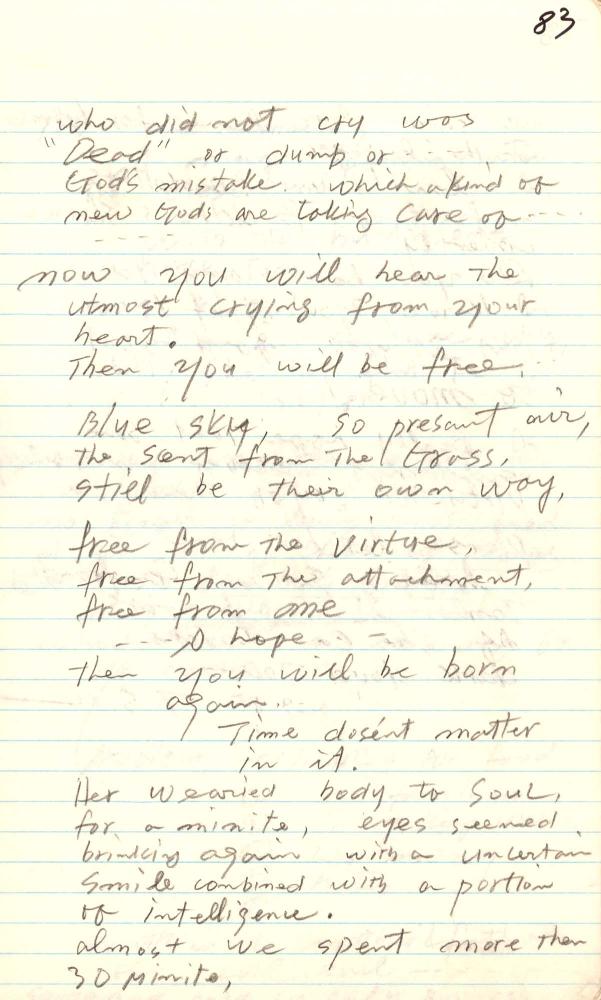 83
who did not cry was
"Dead" or dump or ----
God's mistake. which a kind of
new Gods are taking care of ----
-----
now you will hear the
utmost crying from your
heart.
Then you will be free.
Blue sky, so presant air,
the scent from the Grass,
still be their own way,
free from the virtue,
free from the attachment,
free from one
---- hope. -
then you will be born
again.
Time dosen't matter
in it.
Her wearied body to soul,
for a minite, eyes seemed
again with a uncertain
smile combined with a portion
of intelligence.
almost we spent more then
30 minite,